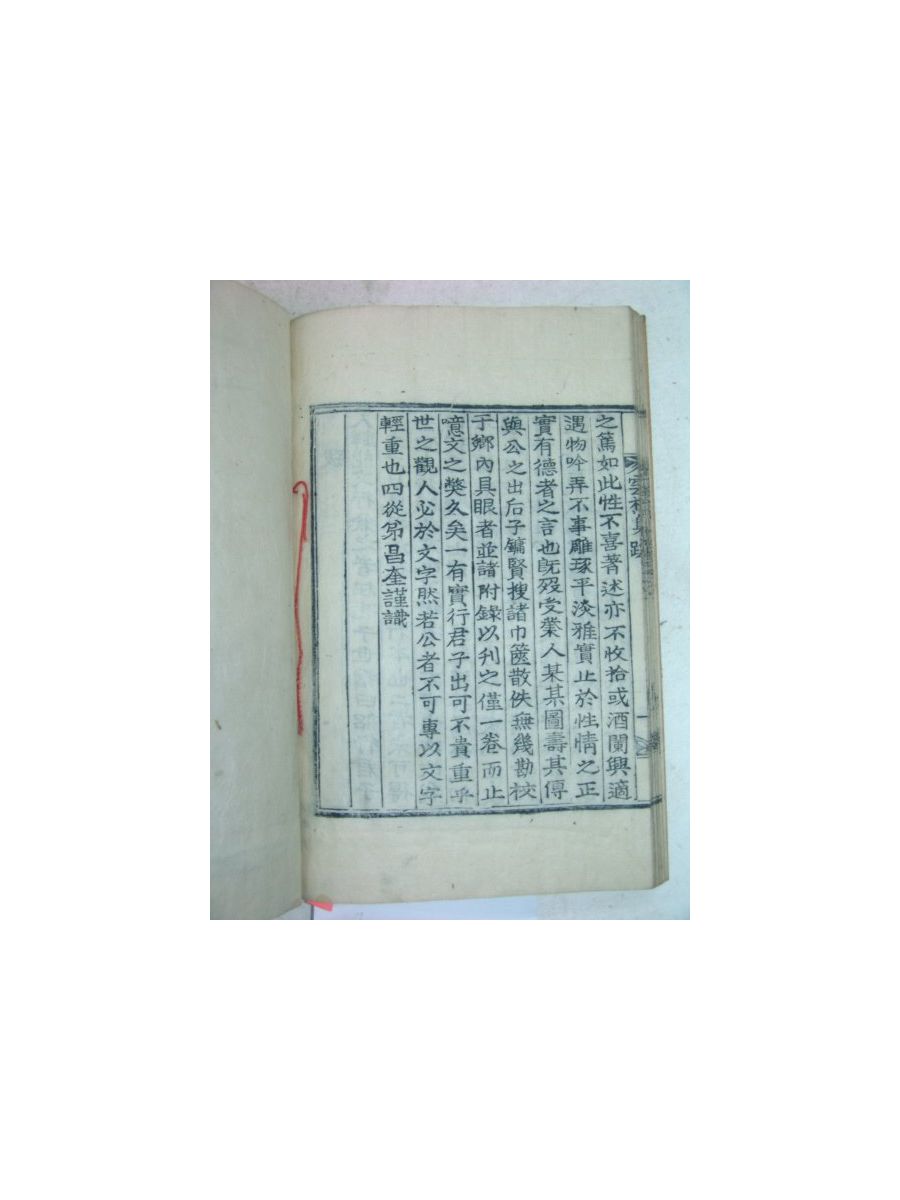 之篤如此性不喜著述亦不收拾或酒闌興適
遇物吟弄不事雕琢平淡雅實止於性情之正
實有德者之言也旣歿受業人某某圖壽其傳
與公之出后子鏞賢搜諸巾篋散佚無幾勘校
于鄕內具眼者並諸附錄以刊之僅一卷而止
噫文之獘久矣一有實行君子出可不貴重乎
世之觀人必於文字然若公者不可專以文字
輕重也四從弟昌奎謹識
跋